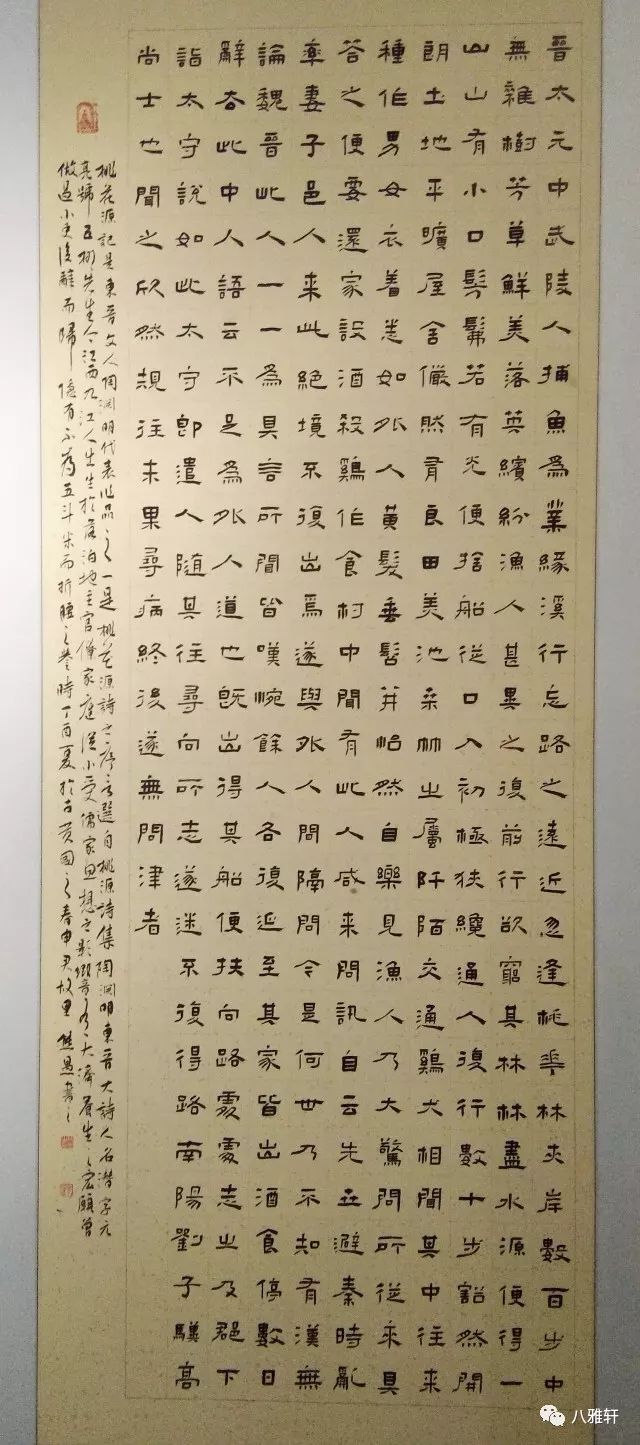 晉太元中武陵人捕魚為業緣溪行忘路之遠近忽逢桃華林夾岸數百步中
無雜樹芳草鮮美落英繽紛漁人甚異之復前行欲窮其林林盡水源便得一
山山有小口髣髴若有光便捨船從口入初極狹纔通人復行數十步豁然開
朗土地平曠屋舍儼然有良田美池桑竹之屬阡陌交通鷄犬相聞其中往来
種作男女衣着悉如外人黃髮垂髫并怡然自樂見漁人乃大驚問所從來具
荅之便要還家設酒殺鷄作食村中聞有此人咸来問訊自云先世避秦時亂
率妻子邑人来此絕境不復出焉遂與外人間隔問今是何世乃不知有漢無
論魏晉此人一一為具言所聞皆嘆惋餘人各復延至其家皆出酒食停數日
辭去此中人語云不足為外人道也既出得其船便扶向路處處志之及郡下
詣太守說如此太守即遣人隨其往尋向所志遂迷不復得路南陽劉子驥高
尚士也聞之欣然規往未果尋病終後遂無問津者
桃花源記是東晉文人陶淵明代表作品之一是桃花源詩之序言選自桃源詩集陶淵明東晉大詩人名潜字元
亮號五柳先生今江西九江人出生於落泊地主官僚家庭從小受儒家思想之影響有大濟蒼生之宏願曾
做過小吏後辭而歸隱有不為五斗米而折腰之譽時丁酉夏於古黃國之春申君故里書之
八雅轩